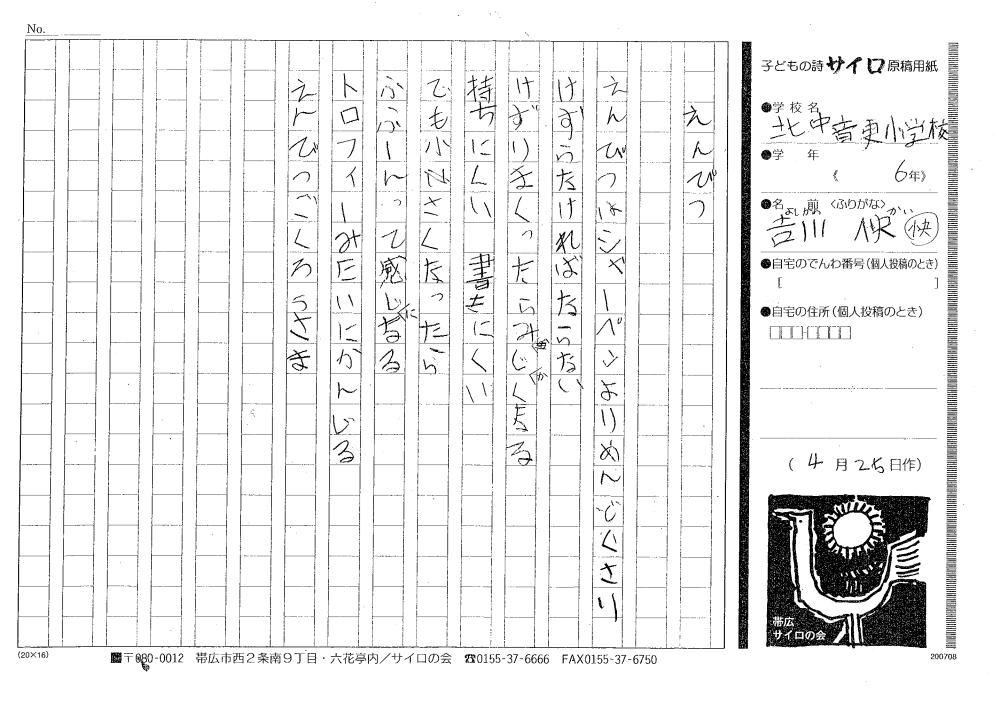 No.
子どもの詩 サイロ 原稿用紙
●学校名
北中音更小学校
●学　年
《 6年》
●名　前 〈ふりがな〉
よしかわ かい
吉川 快 快
●自宅のでんわ番号(個人投稿のとき)
[ ]
●自宅の住所(個人投稿のとき)
□□□-□□□□
( 4 月 25 日作)
帯広
サイロの会
えんぴつ
えんぴつはシャーペンよりめんどくさい
けずらなければならない
けずりまくったらみじかくなる
持ちにくい　書きにくい
でも小さくなったら
ふふーんって感じになる
トロフィーみたいにかんじる
えんぴつごくろうさま
(20×16)
〒080-0012　帯広市西2条南9丁目・六花亭内／サイロの会　☎0155-37-6666　FAX0155-37-6750
200708